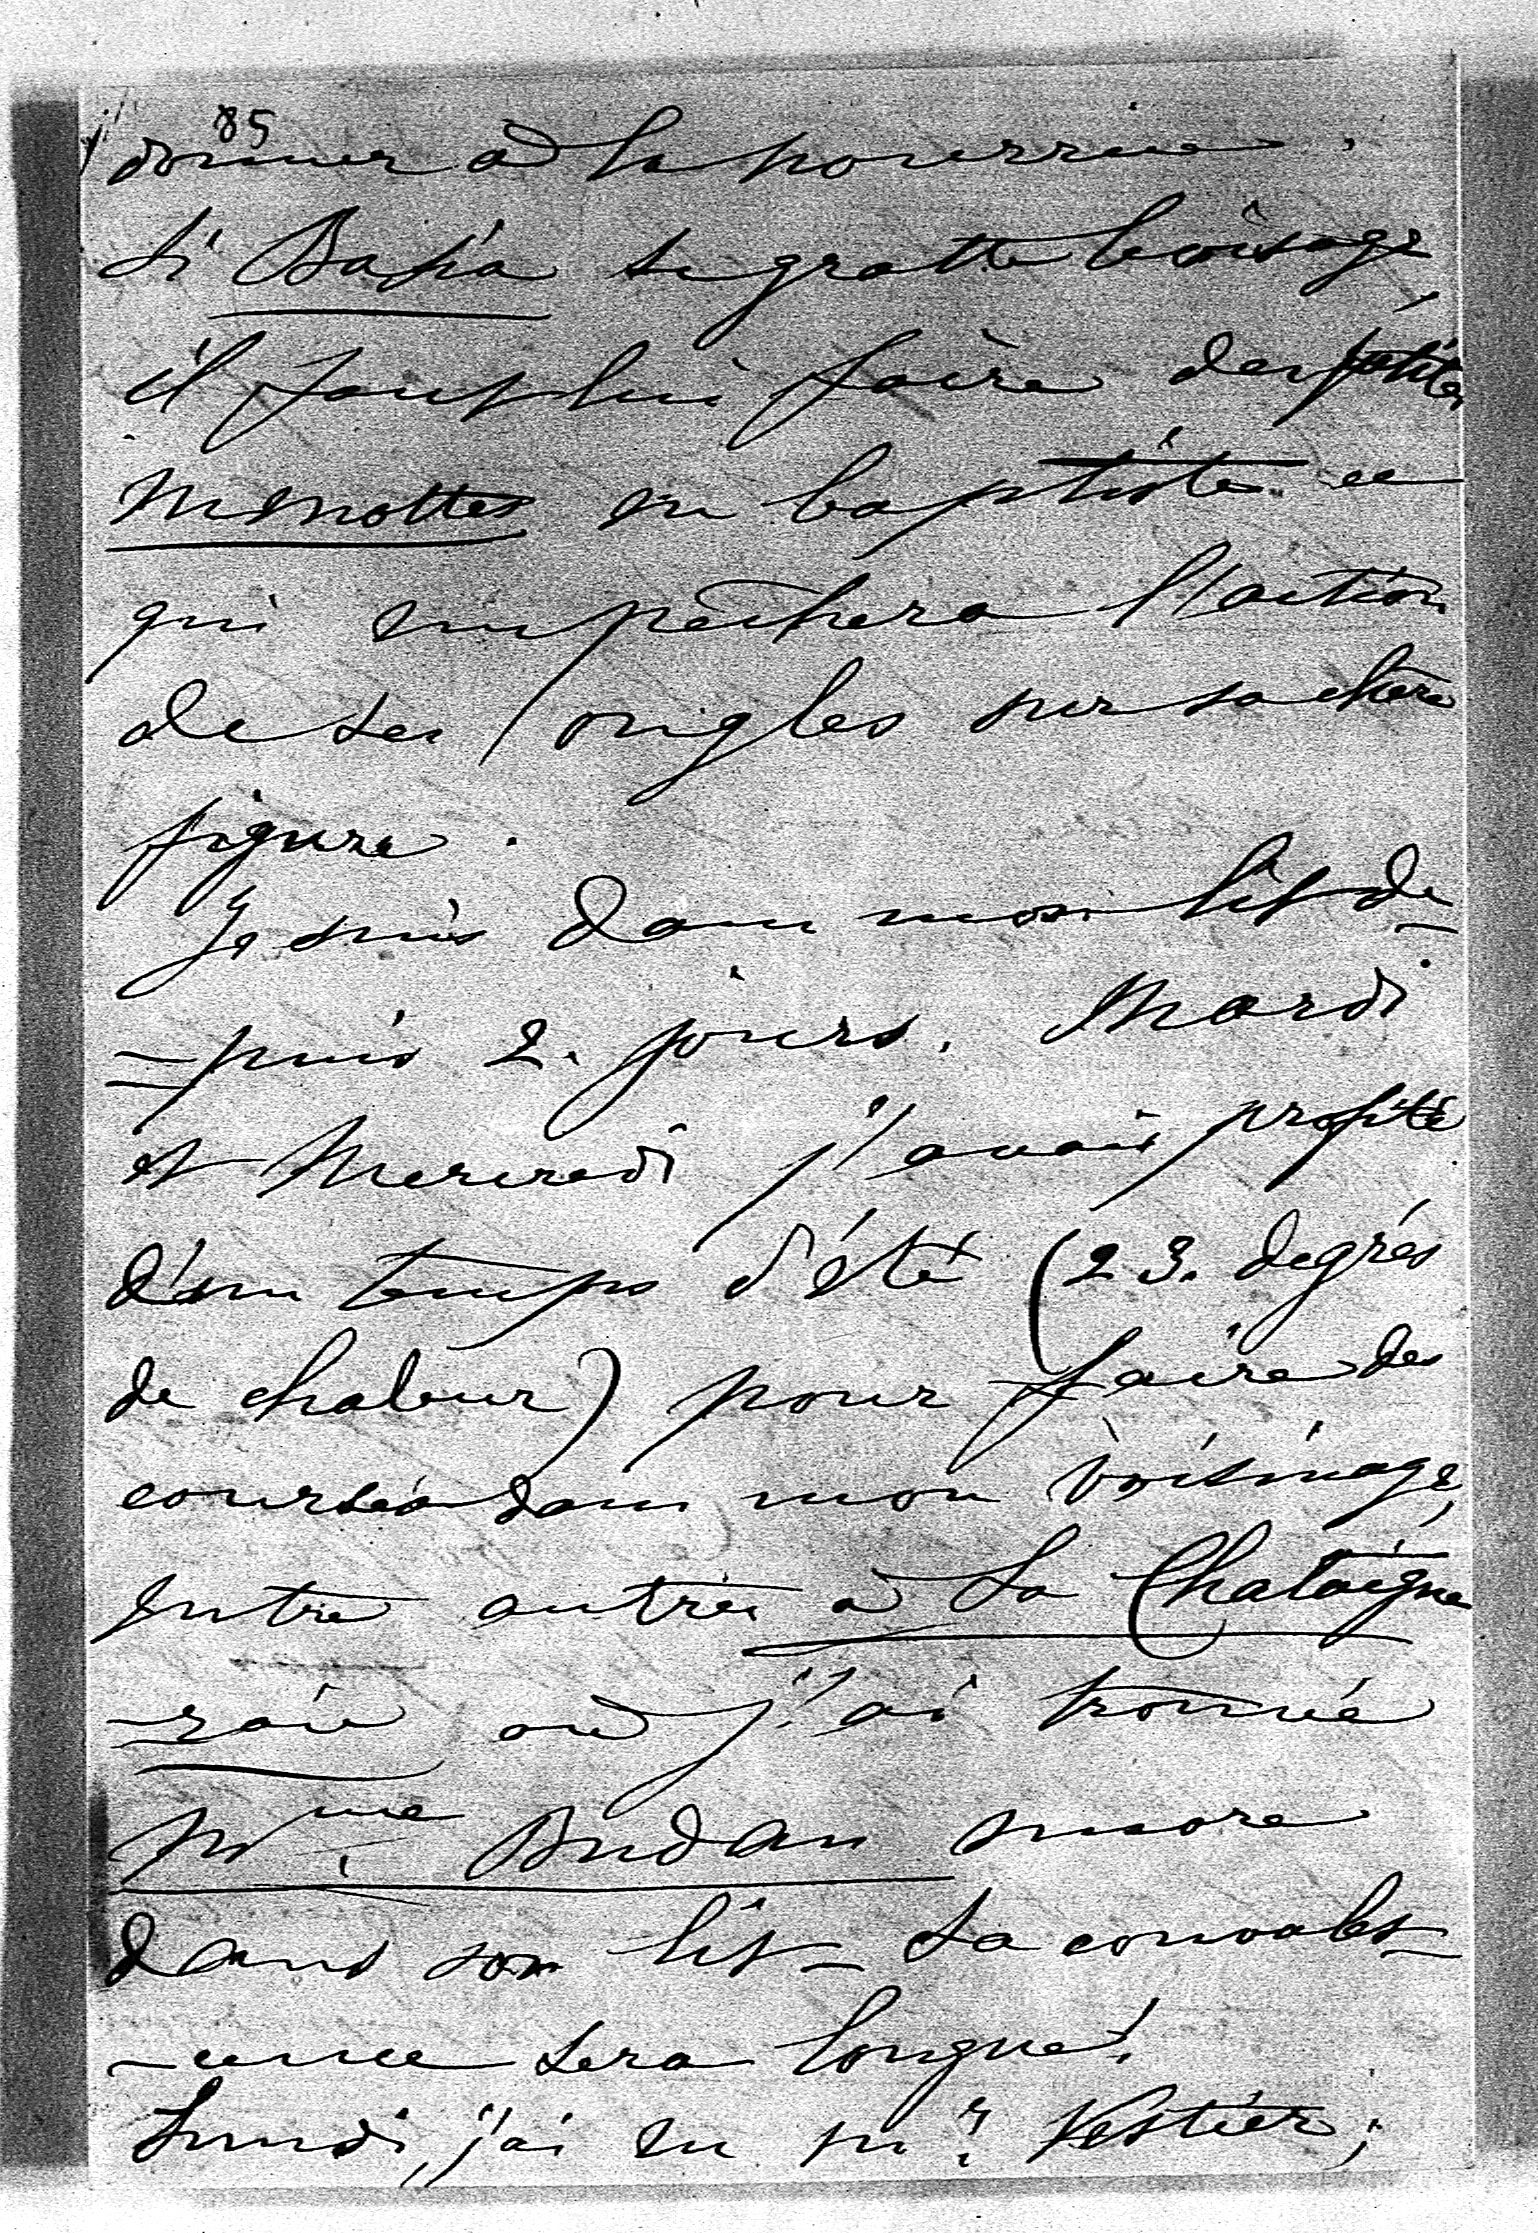 85
donner à la nourrice.
Si Bapa se gratte le visage
il faut lui faire des petites
menottes en baptiste ce
qui empêchera l'action
de ses ongles sur sa chère
figure.
Je suis dans mon lit de-
-puis 2. jours. Mardi
et Mercredi j'avais profité
d'un temps d'été (23. degrés
de chaleur) pour faire des
courses dans mon voisinage,
entre autres à La Chataigne
-raie où j'ai trouvé
Mme Budan encore
dans son lit - Sa convales-
-cence sera longue!
Lundi, j'ai eu Mr Vestier;